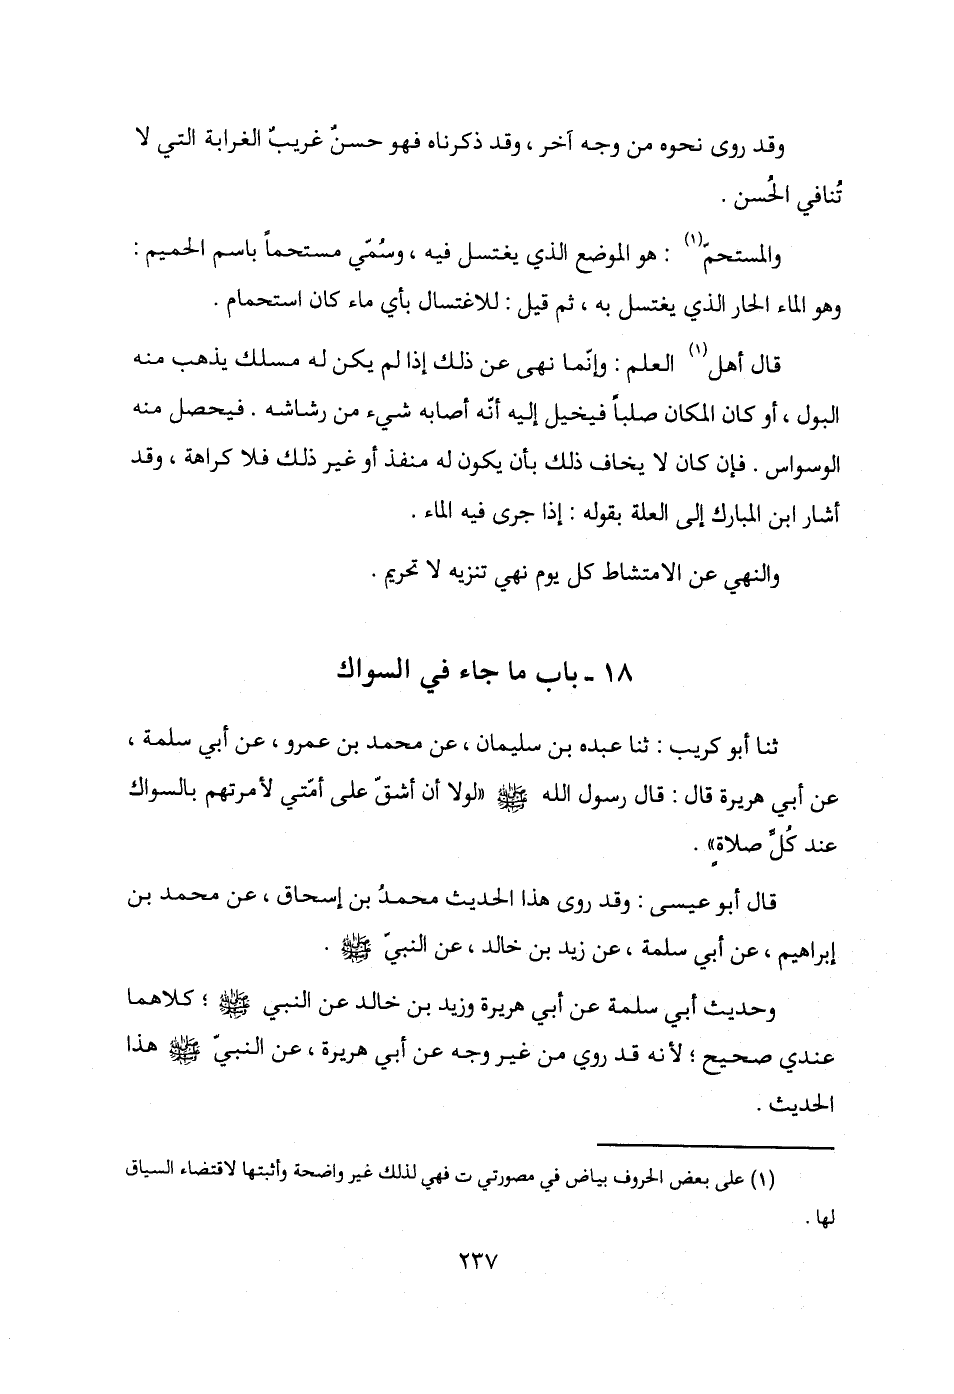 وقد روى نحوه من وجه آخر ، وقد ذكرناه فهو حسنٌ غريبٌ الغرابة التي لا
تُنافي الحُسن .
والمستحمّ(١) : هو الموضع الذي يغتسل فيه ، وسُمّي مستحماً باسم الحميم :
وهو الماء الحار الذي يغتسل به ، ثم قيل : للاغتسال بأي ماء كان استحمام .
قال أهل(١) العلم : وإنّما نهى عن ذلك إذا لم يكن له مسلك يذهب منه
البول ، أو كان المكان صلباً فيخيل إليه أنّه أصابه شيء من رشاشه . فيحصل منه
الوسواس . فإن كان لا يخاف ذلك بأن يكون له منفذ أو غير ذلك فلا كراهة ، وقد
أشار ابن المبارك إلى العلة بقوله : إذا جرى فيه الماء .
والنهي عن الامتشاط كل يوم نهي تنزيه لا تحريم .
١٨ - باب ما جاء في السواك
ثنا أبو كريب : ثنا عبده بن سليمان ، عن محمد بن عمرو ، عن أبي سلمة ،
عن أبي هريرة قال : قال رسول الله ﷺ «لولا أن أشقّ على أمّتي لأمرتهم بالسواك
عند كُلِّ صلاةٍ» .
قال أبو عيسى : وقد روى هذا الحديث محمدُ بن إسحاق ، عن محمد بن
إبراهيم ، عن أبي سلمة ، عن زيد بن خالد ، عن النبيّ ﷺ .
وحديث أبي سلمة عن أبي هريرة وزيد بن خالد عن النبي ﷺ ؛ كلاهما
عندي صحيح ؛ لأنه قد روي من غير وجه عن أبي هريرة ، عن النبيّ ﷺ هذا
الحديث .
(١) على بعض الحروف بياض في مصورتي ت فهي لذلك غير واضحة وأثبتها لاقتضاء السياق
لها .
٢٣٧